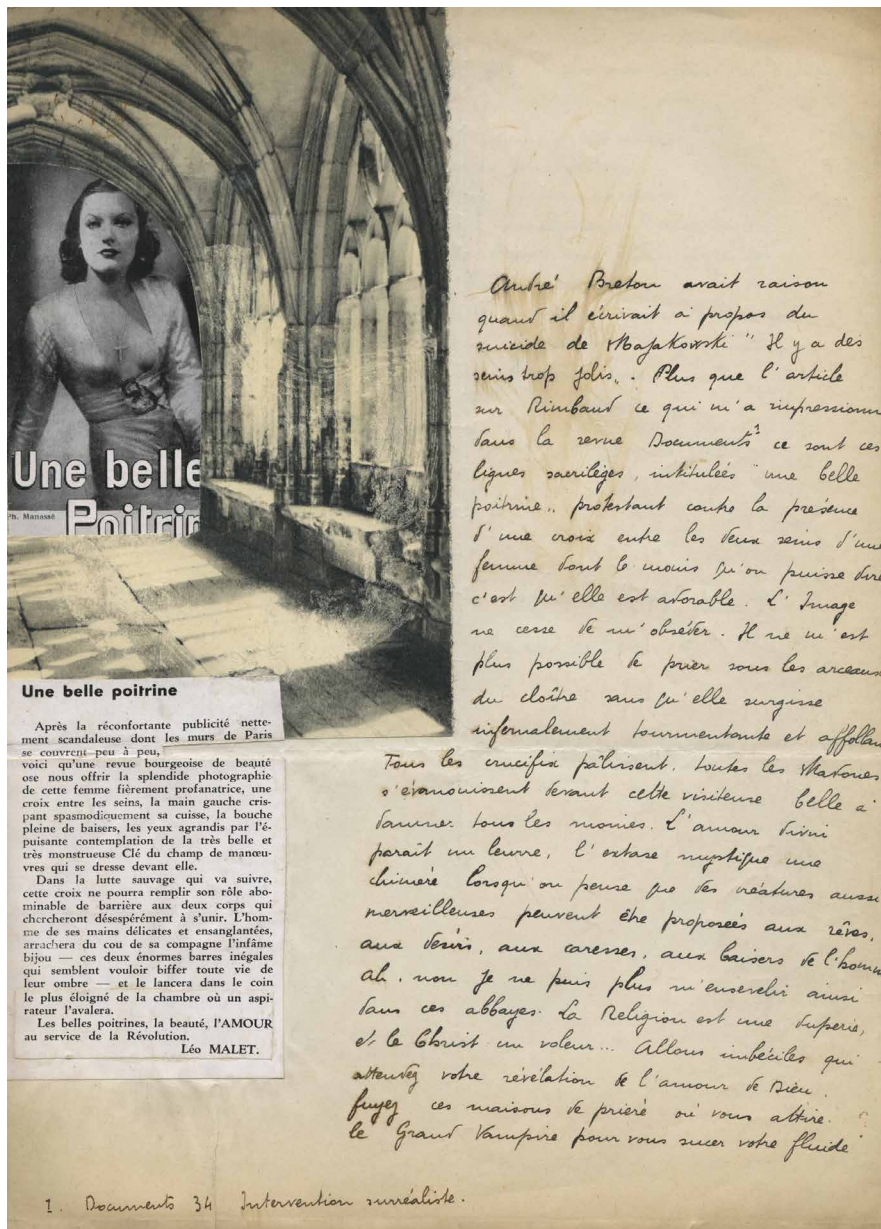 Une belle
Ph. Manassé
Poitrin
Une belle poitrine
Après la réconfortante publicité nette-
ment scandaleuse dont les murs de Paris
se couvrent peu à peu,
voici qu'une revue bourgeoise de beauté
ose nous offrir la splendide photographie
de cette femme fièrement profanatrice, une
croix entre les seins, la main gauche cris-
pant spasmodiquement sa cuisse, la bouche
pleine de baisers, les yeux agrandis par l'é-
puisante contemplation de la très belle et
très monstrueuse Clé du champ de manœu-
vres qui se dresse devant elle.
Dans la lutte sauvage qui va suivre,
cette croix ne pourra remplir son rôle abo-
minable de barrière aux deux corps qui
chercheront désespérément à s'unir. L'hom-
me de ses mains délicates et ensanglantées,
arrachera du cou de sa compagne l'infâme
bijou — ces deux énormes barres inégales
qui semblent vouloir biffer toute vie de
leur ombre — et le lancera dans le coin
le plus éloigné de la chambre où un aspi-
rateur l'avalera.
Les belles poitrines, la beauté, l'AMOUR
au service de la Révolution.
Léo MALET.
André Breton avait raison
quand il écrivait à propos du
suicide de Majakowski " Il y a des
seins trop jolis„. Plus que l'article
sur Rimbaud ce qui m'a impressionn
dans la revue Documents¹ ce sont ces
lignes sacrilèges, intitulées "une belle
poitrine„ protestant contre la présence
d'une croix entre les deux seins d'une
femme dont le moins qu'on puisse dire
c'est qu'elle est adorable. L'Image
ne cesse de m'obséder. Il ne m'est
plus possible de prier sous les arceaux
du cloître sans qu'elle surgisse
infernalement tourmentante et affollan
Tous les crucifix pâlissent, toutes les Madones
s'évanouissent devant cette visiteuse belle à
damner tous les moines. L'amour divin
parait un leurre, l'extase mystique une
chimère lorsqu'on pense que des créatures aussi
merveilleuses peuvent être proposées aux rêves,
aux désirs, aux caresses, aux baisers de l'homm
ah, non je ne puis plus m'ensevelir ainsi
dans ces abbayes. La Religion est une duperie,
et le Christ un voleur... Allons imbéciles qui
attendez votre révélation de l'amour de Dieu.
fuyez ces maisons de prière où vous attire
le Grand Vampire pour vous sucer votre fluide
1. Documents 34 Intervention surréaliste.